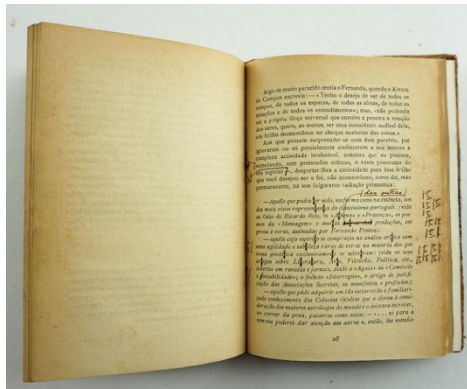 Algo de muito parecido sentia o Fernando, quando o Álvaro
de Campos escrevia: — «Tenho o desejo de ser de todos os
tempos, de todos os espaços, de todas as almas, de todas as
emoções e de todos os entendimentos»; mas, «não podendo
ser a própria fôrça universal que envolve e penetra a rotação
dos seres, quero, ao menos, ser uma consciência audível dela,
um brilho momentâneo no choque nocturno das coisas.»
Aos que possam surpreender-se com dois garotos, por
ignorarem ou só parcialmente conhecerem a sua intensa e
complexa actividade intelectual, convém que eu procure,
sem pretensões críticas, o vasto panorama do
seu espírito, despertar-lhes a curiosidade para êsse brilho
que você desejou ser e foi, não momentâneo, como diz, mas
permanecente, na sua fulgurante radiação prismática:
(dos outros)
— Aquele que podia ser tido, na forma como na essência, um
dos mais vivos representantes do classicismo português: vide
as Odes de Ricardo Reis, in «Athena» e «Presença», os poe-
mas da «Mensagem» e muitas produções, em
prosa e verso, assinadas por Fernando Pessoa;
— aquele cujo espírito se comprazia na análise crítica com
uma agilidade e subtileza raras de vermos na maioria dos que
nessa ginástica se adextram: vide os seus
artigos sobre Literatura, Arte, Filosofia, Política, etc.,
insertos em revistas e jornais, desde a «Águia» ao «Comércio
e Contabilidade»; o folheto «Interregno», o artigo de justifi-
cação das Associações Secretas, os manifestos e prefácios;
— aquele que pôde adquirir um tão esclarecido e familiari-
zado conhecimento das Ciências Ocultas que o eleva à consi-
deração dos maiores astrólogos do mundo e o deixava escrever,
ao correr da pena, palavras como estas: — «... só para a
semana poderei dar atenção aos astros e, então, lhe manda-
28